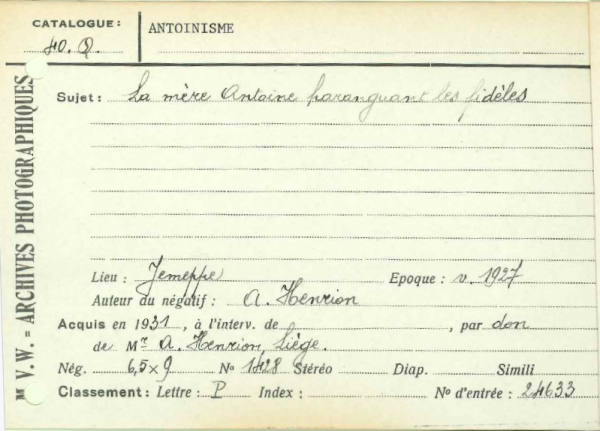 CATALOGUE: ANTOINISME
40. Q.
Mn V.W. = ARCHIVES PHOTOGRAPHIQUES
Sujet : La mère Antoine haranguant les fidèles
Lieu : Jemeppe Epoque : v. 1927
Auteur du négatif : A. Henrion
Acquis en 1931, à l'interv. de , par don
de Mr A. Henrion, Liège.
Nég. 6,5 x 9 No 1428 Stéréo Diap. Simili
Classement : Lettre : P Index : No d'entrée : 24633